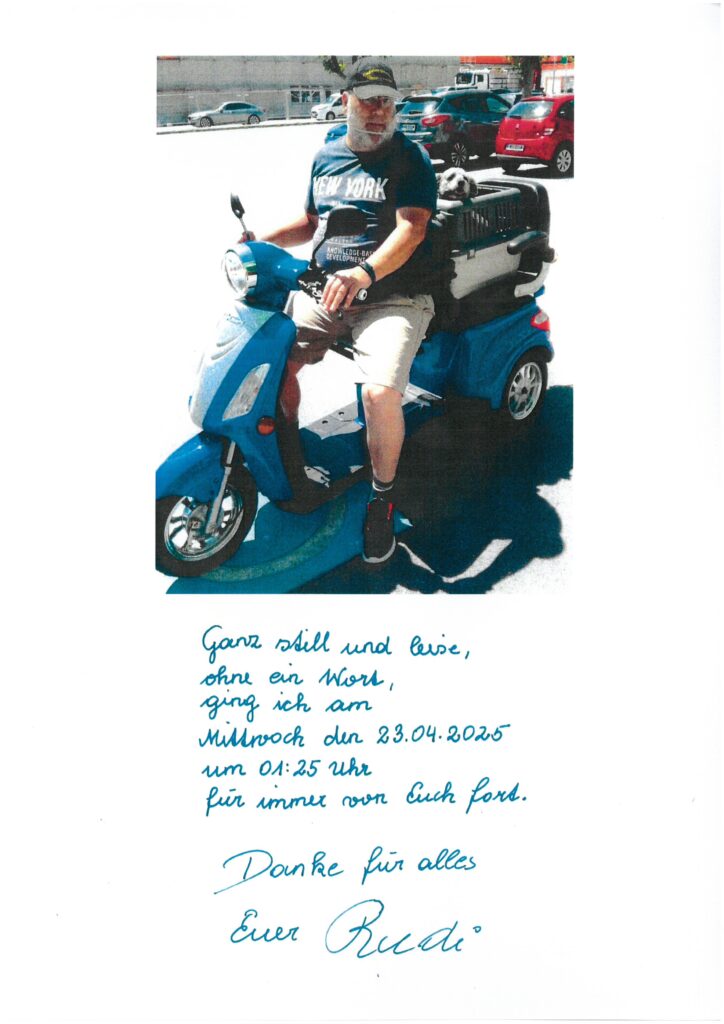 NEW YORK
KNOWLEDGE-BA
DEVELOPMENT
Ganz still und leise,
ohne ein Wort,
ging ich am
Mittwoch den 23.04.2025
um 01:25 Uhr
für immer von Euch fort.
Danke für alles
Euer Rudi